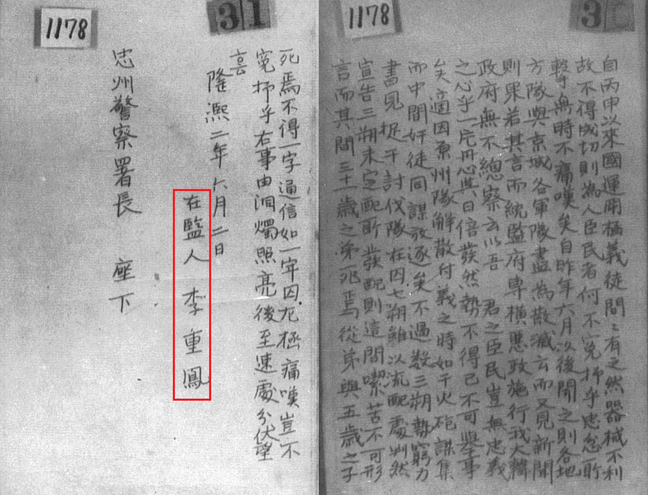 1178
3
自丙申以來國運閉義徒間〻有之然器械不利
故不得成功則為人臣民者何不寃抑乎忠忿所
擊無時不痛嘆矣自昨年六月以後聞之則各地
方隊與京城各軍隊盡為散滅云而又見新聞
則果若其言而統監府專橫惡政施行我大韓
政府無不總察云以吾 君之臣民豈無忠義
之心乎一片丹心與日倍發然勢不得已不可舉事
矣適因原州隊解散付義之時如干火砲謀集
而中間奸徒同謀放逐矣不過數三朔勢窮力
盡見捉于討伐隊在囚七朔以流配處判然
宣告三朔未定配所發配則這間喫苦不可形
言而其間三十一歲之弟死焉從弟與五歲之子
1178
31
死焉不得一字通信如一牢囚尤極痛嘆豈不
寃抑乎右事由洞燭照亮後至速處分伏望
隆熙二年六月二日
在監人 李重鳳
忠州警察署長 座下